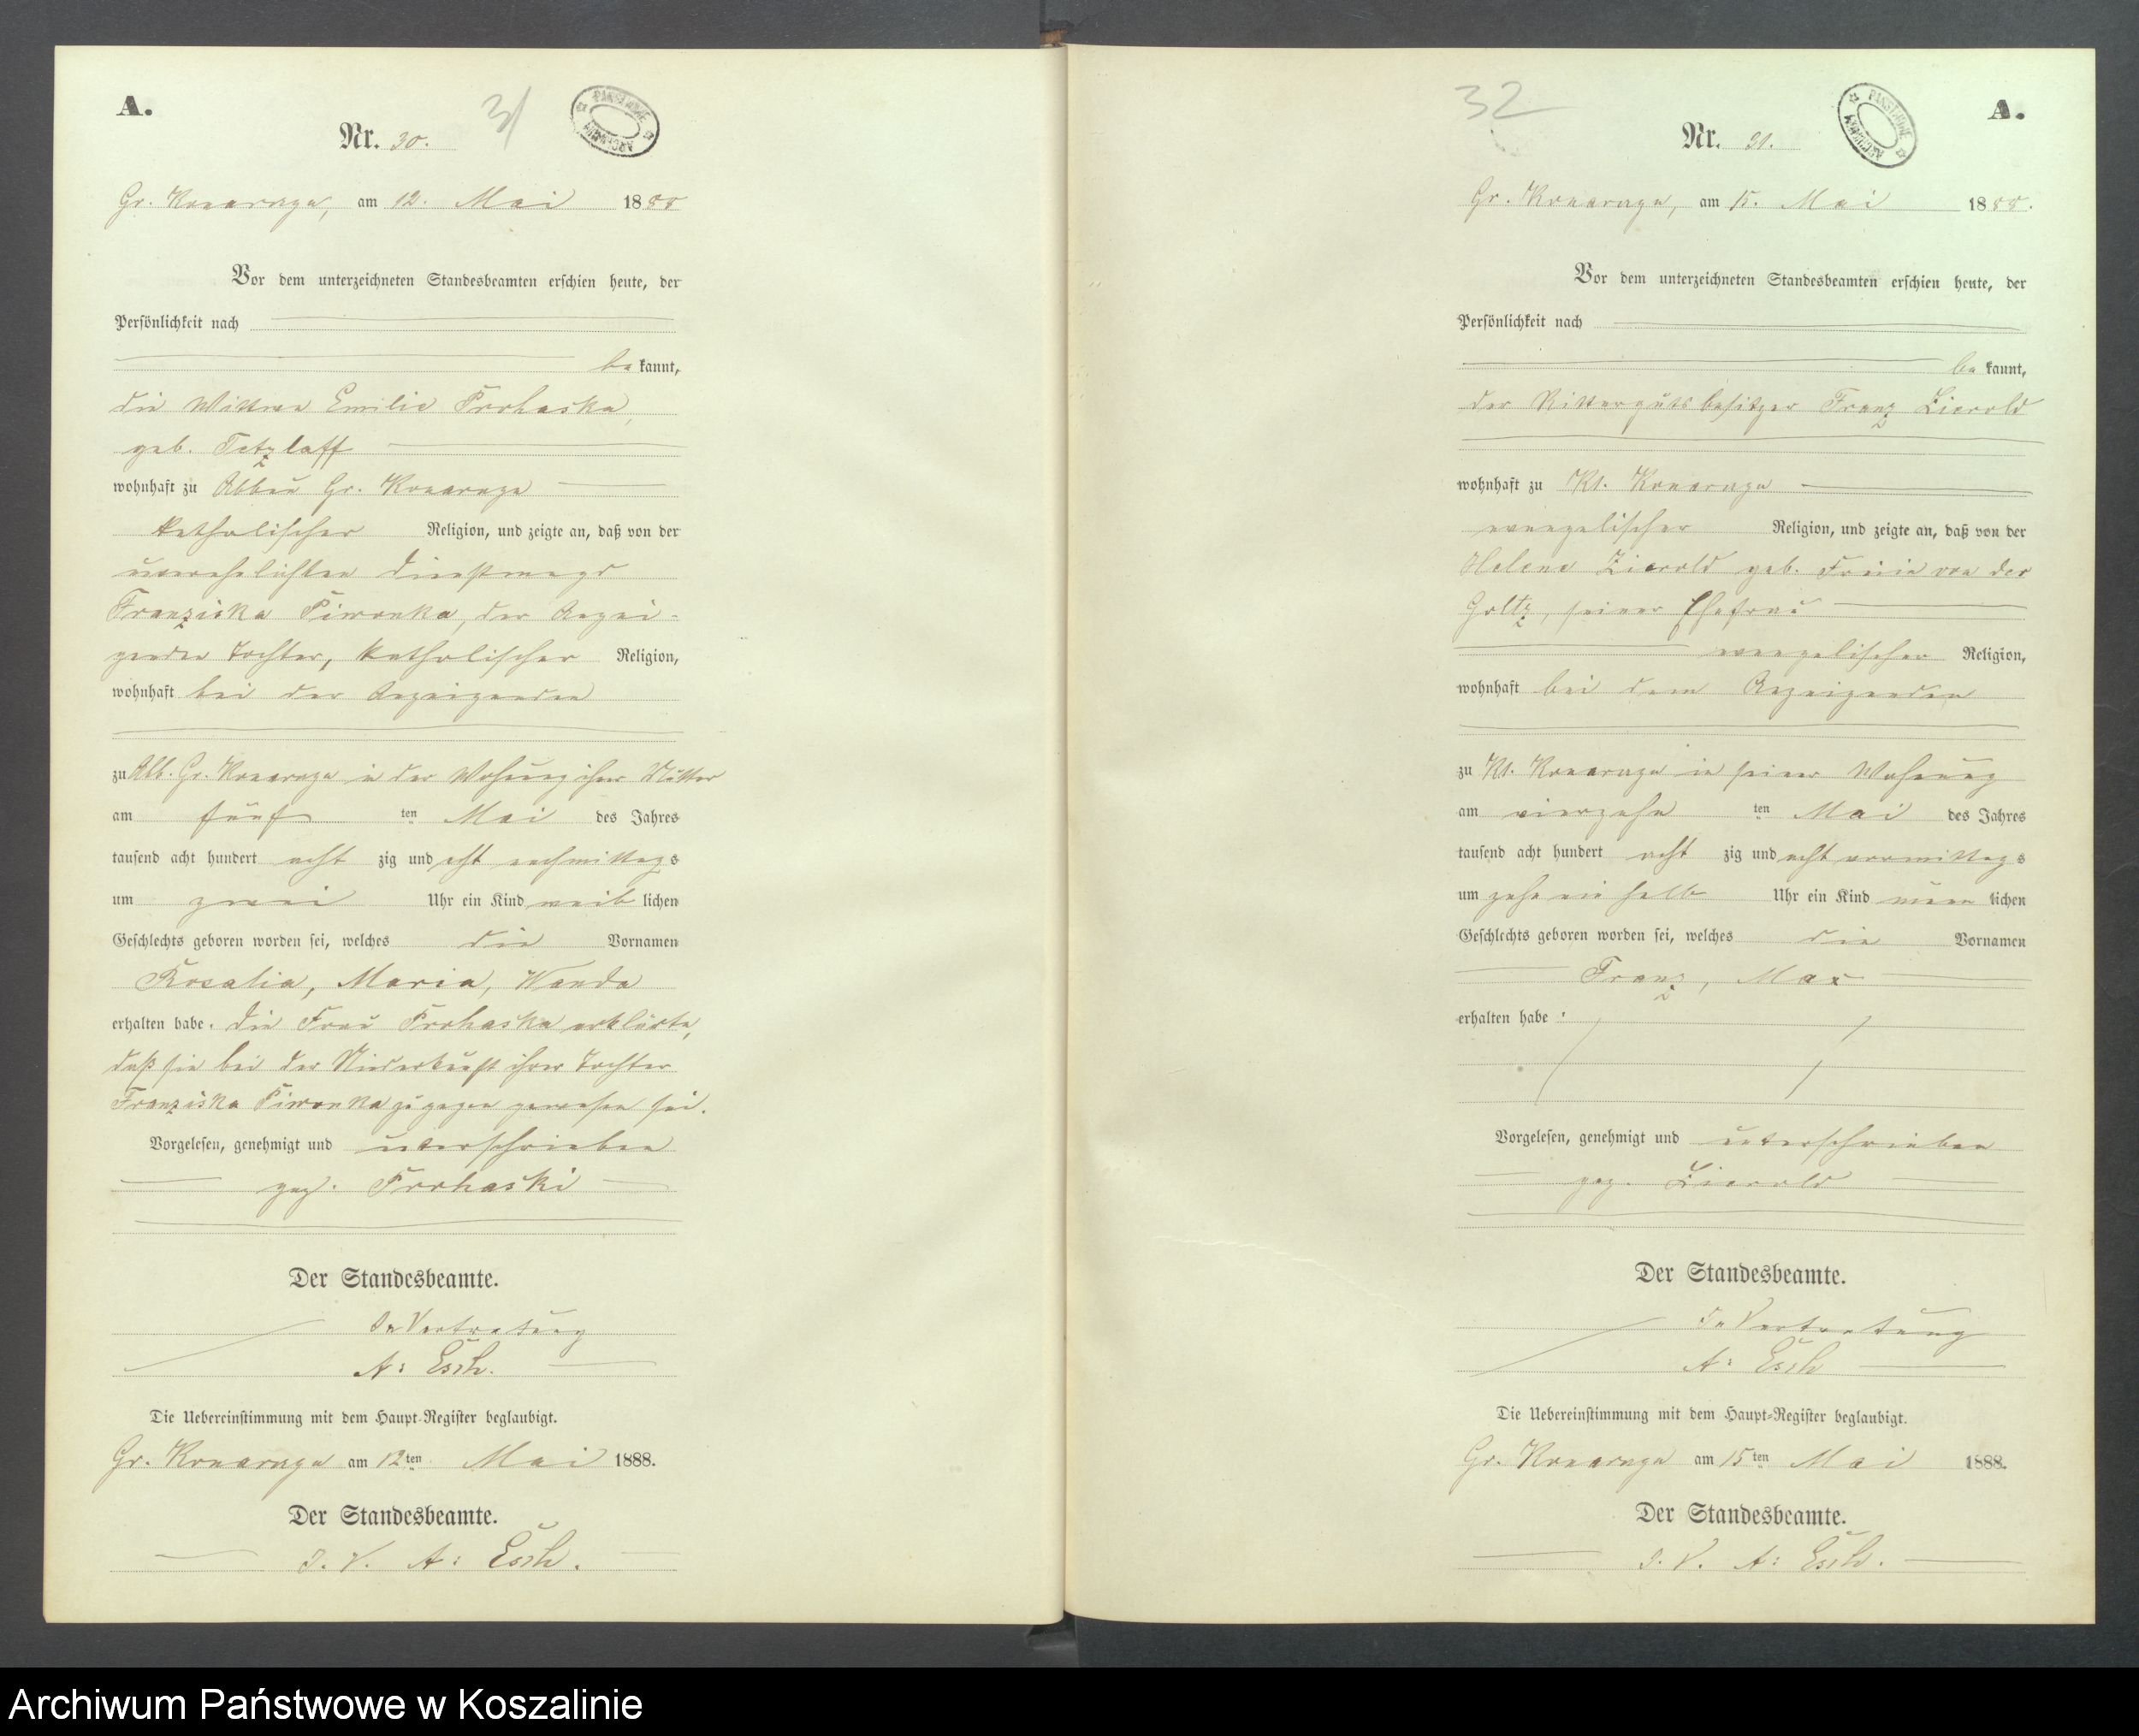 A.
31
PAŃSTWOWE ARCHIWUM
Nr. 30.
Gr. Konarczyn, am 12. Mai 1888
Vor dem unterzeichneten Standesbeamten erschien heute, der
Persönlichkeit nach
be kannt,
die Wittwe Emilie Prohaska,
geb. Tetzlaff
wohnhaft zu Abbau Gr. Konarczyn
katholischer Religion, und zeigte an, daß von der
unverehelichten Dienstmagd
Franziska Piwonka, der Anzei-
genden Tochter, katholischer Religion,
wohnhaft bei der Anzeigenden
zu Abb. Gr. Konarczyn in der Wohnung ihrer Mutter
am fünf ten Mai des Jahres
tausend acht hundert acht zig und acht nachmittags
um zwei Uhr ein Kind weib lichen
Geschlechts geboren worden sei, welches die Vornamen
Rosalia, Maria, Wanda
erhalten habe. Die Frau Prohaska erklärte,
daß sie bei der Niederkunft ihrer Tochter
Franziska Piwonka zugegen gewesen sei.
Vorgelesen, genehmigt und unterschrieben
gez. Prohaski
Der Standesbeamte.
In Vertretung
A: Esch.
Die Uebereinstimmung mit dem Haupt-Register beglaubigt.
Gr. Konarczyn am 12ten Mai 1888.
Der Standesbeamte.
I. V. A: Esch.
32
PAŃSTWOWE ARCHIWUM
A.
Nr. 31.
Gr. Konarczyn, am 15. Mai 1888.
Vor dem unterzeichneten Standesbeamten erschien heute, der
Persönlichkeit nach
be kannt,
der Rittergutsbesitzer Franz Zierold
wohnhaft zu Kl. Konarczyn
evangelischer Religion, und zeigte an, daß von der
Helene Zierold geb. Freiin von der
Goltz, seiner Ehefrau
evangelischer Religion,
wohnhaft bei dem Anzeigenden
zu Kl. Konarczyn in seiner Wohnung
am vierzehn ten Mai des Jahres
tausend acht hundert acht zig und acht vormittags
um zehn ein halb Uhr ein Kind männ lichen
Geschlechts geboren worden sei, welches die Vornamen
Franz, Max
erhalten habe.
Vorgelesen, genehmigt und unterschrieben
gez. Zierold
Der Standesbeamte.
In Vertretung
A: Esch
Die Uebereinstimmung mit dem Haupt-Register beglaubigt.
Gr. Konarczyn am 15ten Mai 1888.
Der Standesbeamte.
I. V. A: Esch.
Archiwum Państwowe w Koszalinie